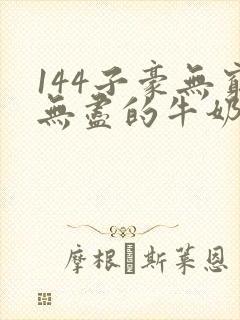 144子豪無窮
無盡的牛奶
摩根�斯萊恩